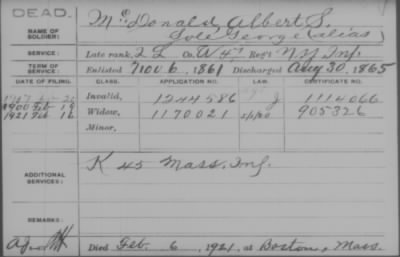 DEAD.
NAME OF SOLDIER: McDonald, Albert S.
Cole George (alias)
SERVICE: Late rank, 2 L Co. A 47 Reg't N.Y. Inf.
TERM OF SERVICE: Enlisted Nov 6, 1861 Discharged Aug 30, 1865
DATE OF FILING. CLASS. APPLICATION NO. LAW. CERTIFICATE NO.
Invalid, 1244586 J 1114066
1921 Feb 16 Widow, 1170021 905326
Minor,
ADDITIONAL SERVICES: K 45 Mass. Inf.
REMARKS:
Died Feb. 6, 1921, at Boston, Mass.